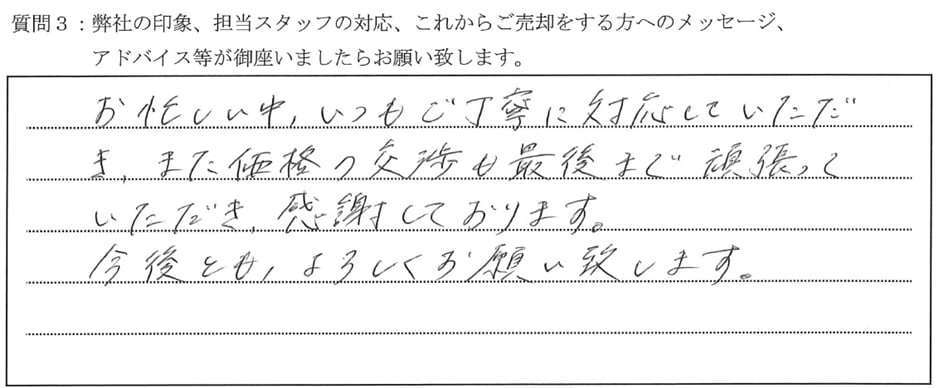 質問３：弊社の印象、担当スタッフの対応、これからご売却をする方へのメッセージ、
アドバイス等が御座いましたらお願い致します。
お忙しい中、いつもご丁寧に対応していただだ
き、また価格の交渉も最後まで頑張って
いただき、感謝しております。
今後とも、よろしくお願い致します。